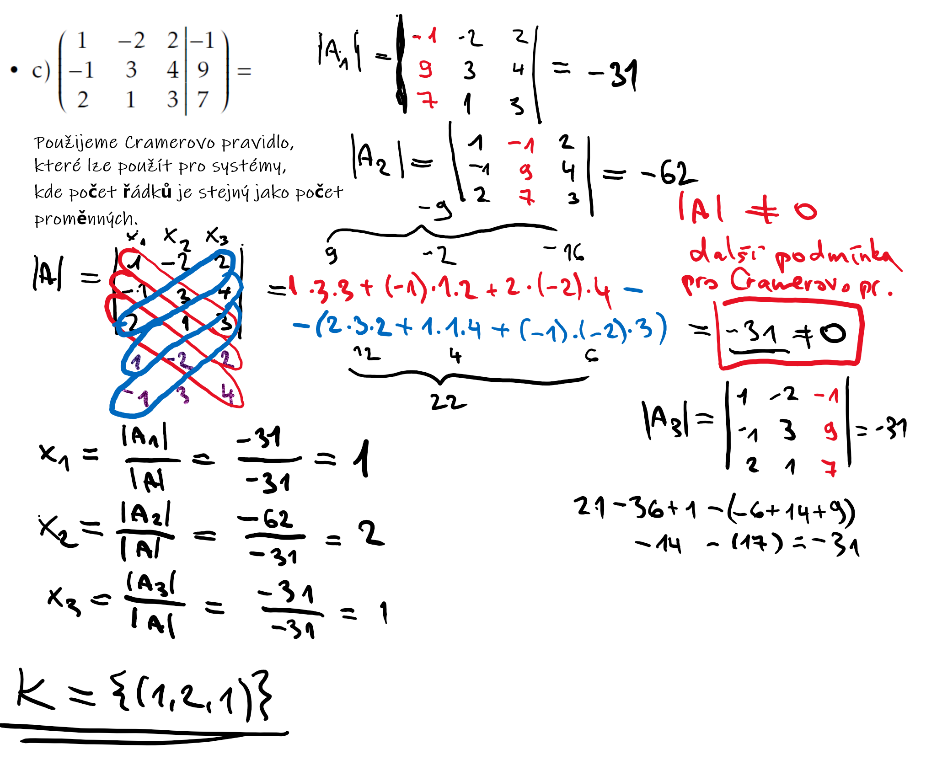 • c) ( 1 −2 2 | −1
−1 3 4 | 9
2 1 3 | 7 ) =
|A₁| = | -1 -2 2
9 3 4
7 1 3 | = -31
Použijeme Cramerovo pravidlo,
které lze použít pro systémy,
kde počet řádků je stejný jako počet
proměnných.
|A₂| = | 1 -1 2
-1 9 4
2 7 3 | = -62
|A| ≠ 0
další podmínka
pro Cramerovo pr.
x₁ x₂ x₃
|A| = | 1 -2 2
-1 3 4
2 1 3 |
1 -2 2
-1 3 4
-9
9 -2 -16
= 1·3·3 + (-1)·1·2 + 2·(-2)·4 -
- (2·3·2 + 1·1·4 + (-1)·(-2)·3) = -31 ≠ 0
12 4 6
22
|A₃| = | 1 -2 -1
-1 3 9
2 1 7 | = -31
21 - 36 + 1 - (-6 + 14 + 9)
-14 - (17) = -31
x₁ = |A₁| / |A| = -31 / -31 = 1
x₂ = |A₂| / |A| = -62 / -31 = 2
x₃ = |A₃| / |A| = -31 / -31 = 1
K = {(1,2,1)}